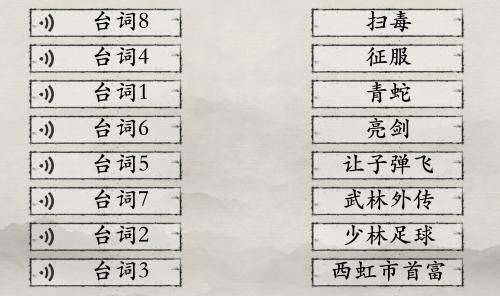 台词8 扫毒
台词4 征服
台词1 青蛇
台词6 亮剑
台词5 让子弹飞
台词7 武林外传
台词2 少林足球
台词3 西虹市首富